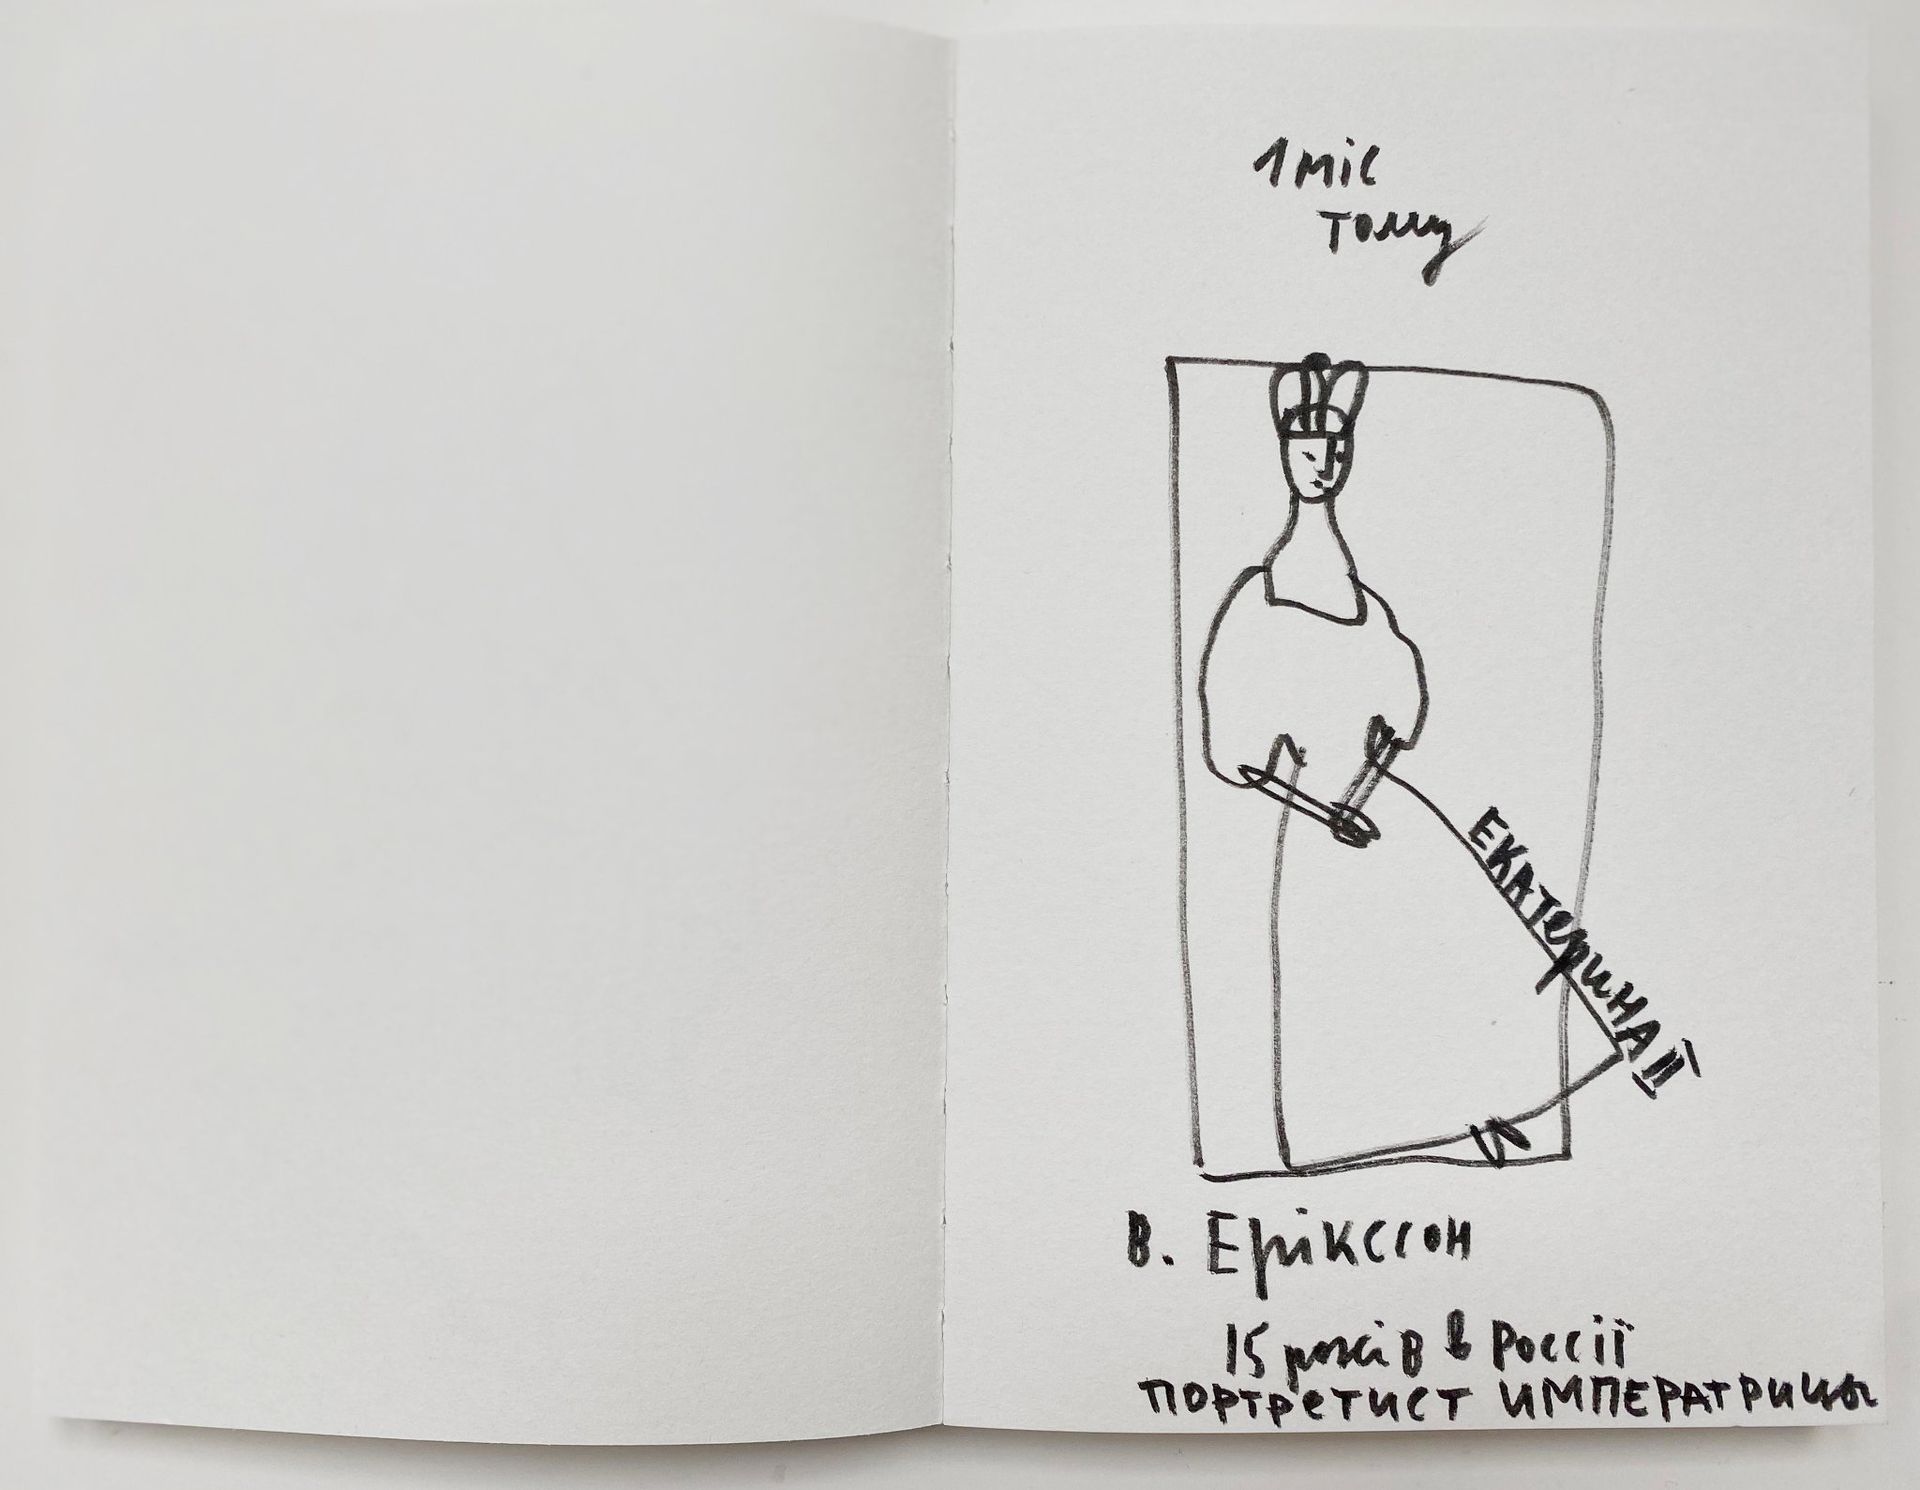 1 міс
тому
ЕКАТеринА II
В. Ерікссон
15 років в Россії
ПОРТРеТИСТ ИМПЕРАТРИЦЫ